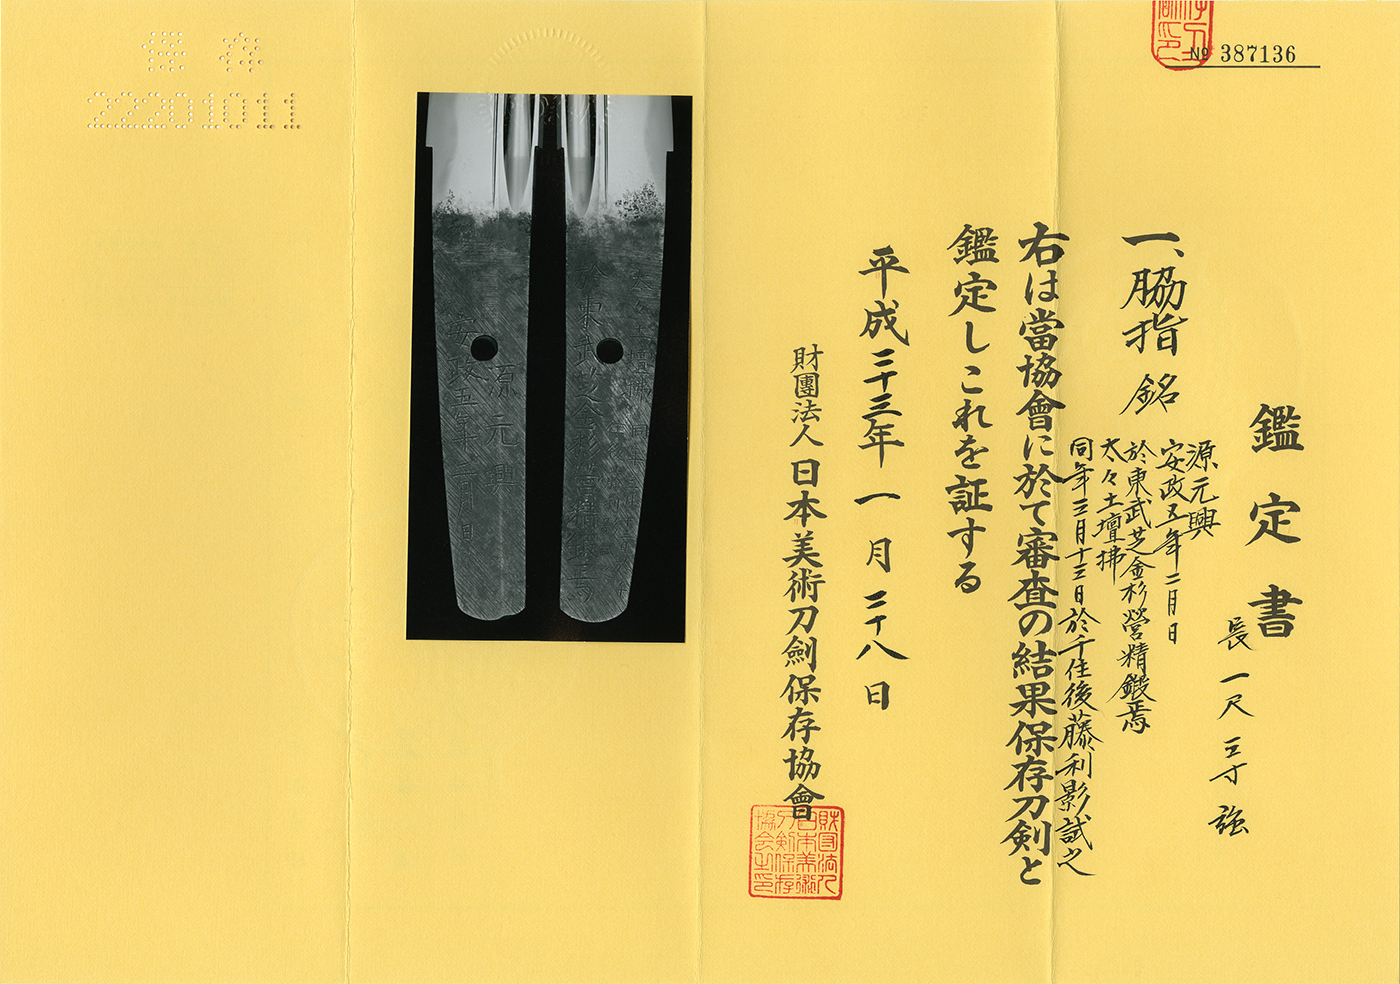 № 387136
鑑定書
長一尺三寸強
一、脇指 銘
源元興
安政五年二月日
於東武芝金杉營精鍛焉
太々土壇拂
同年三月十三日於千住後藤利影試之
右は當協會に於て審査の結果保存刀剣と
鑑定しこれを証する
平成二十三年一月二十八日
財團法人日本美術刀劍保存協會
財団法人
日本美術
刀剣保存
協会之印
保存
22201011
源元興
安政五年二月日